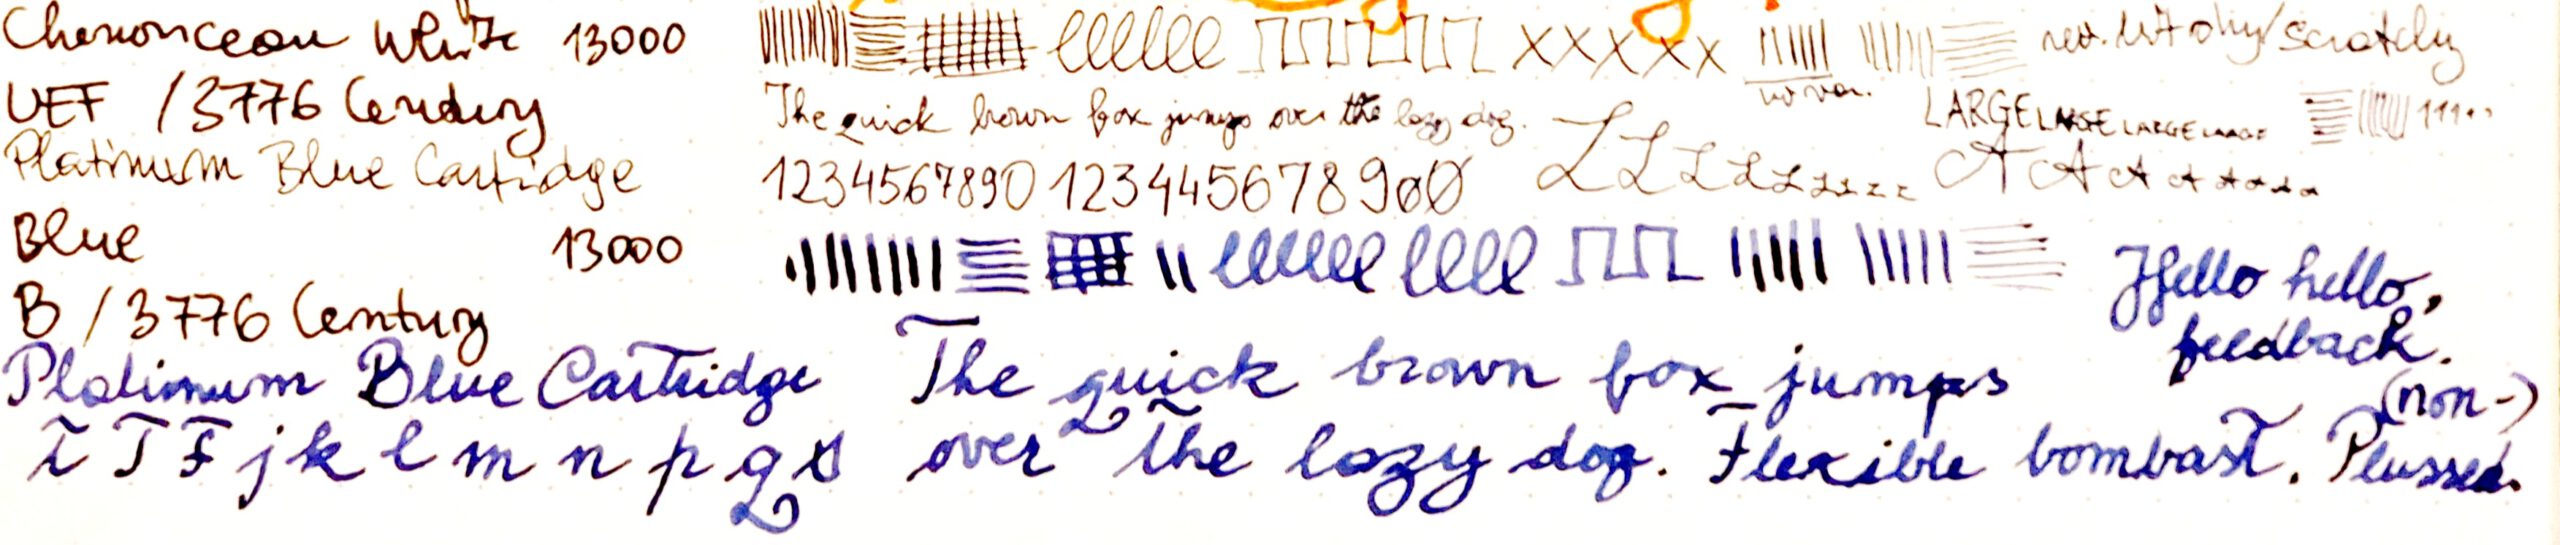 Chenonceau White 13000
UEF / 3776 Century
Platinum Blue Cartridge
very bit dry/scratchy
no var.
The quick brown fox jumps over the lazy dog.
LARGE LARGE LARGE LARGE
111..
1234567890 123445678900
L L L L L L L L L
A A A A A A A A
Blue 13000
B / 3776 Century
Hello hello,
feedback.
Platinum Blue Cartridge The quick brown fox jumps
(non-)
T F j k l m n p q over the lazy dog. Flexible bombast. Plussed.